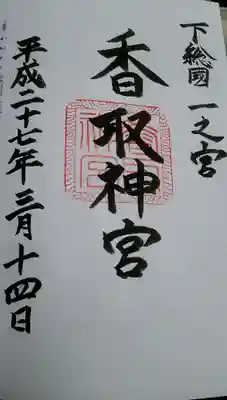 下総國一之宮
香取神宮
平成二十七年三月十四日